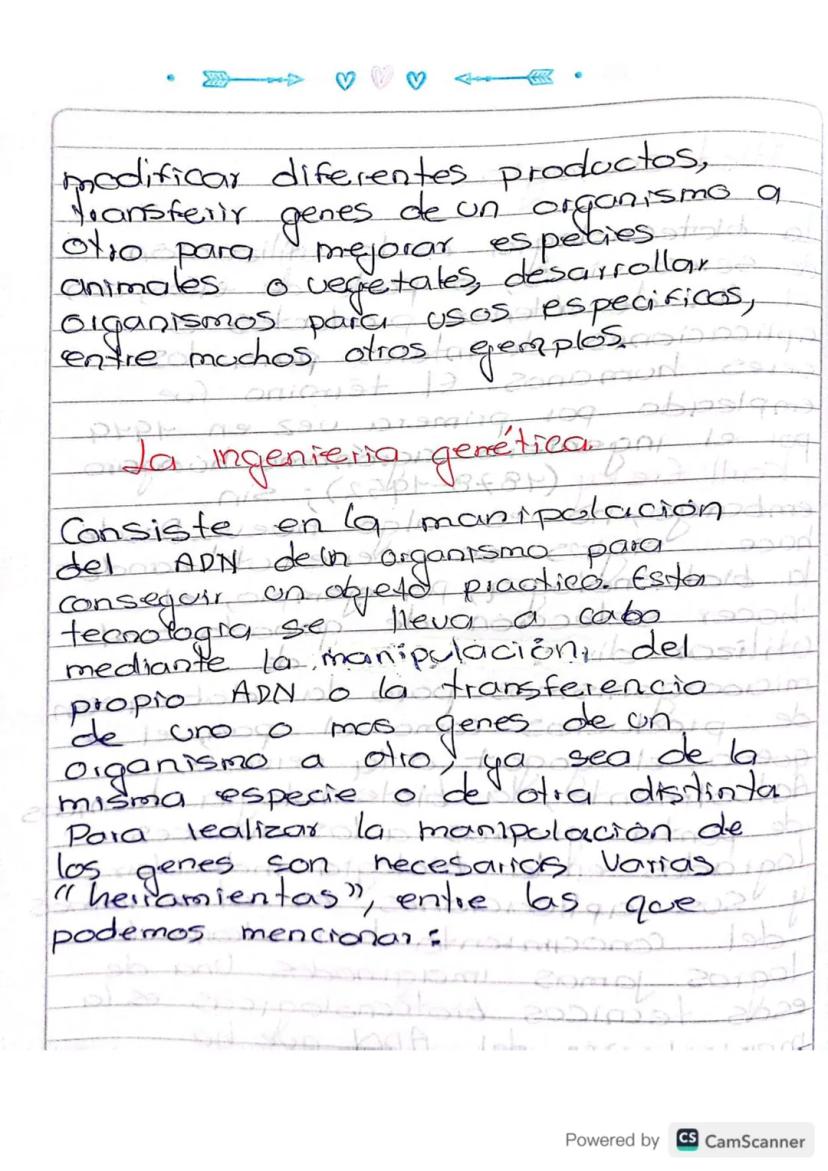 modificar diferentes productos,
transferir genes de un organismo a
otro para mejorar especies
animales o vegetales, desarrollar
organismos para usos especificos,
entre muchos otros ejemplos.
La ingenieria genética.
Consiste en la manipulación
del ADN de un organismo para
conseguir un objeto practico. Esta
tecnologia se lleva a cabo
mediante la manipulación, del
propio ADN o la transferencia
de uno o mas genes de un
organismo a otro, ya sea de la
misma especie o de otra distinta
Para realizar la manipulación de
los genes son necesarios varias
"herramientas", entre las que
podemos mencionar:
Powered by CS CamScanner